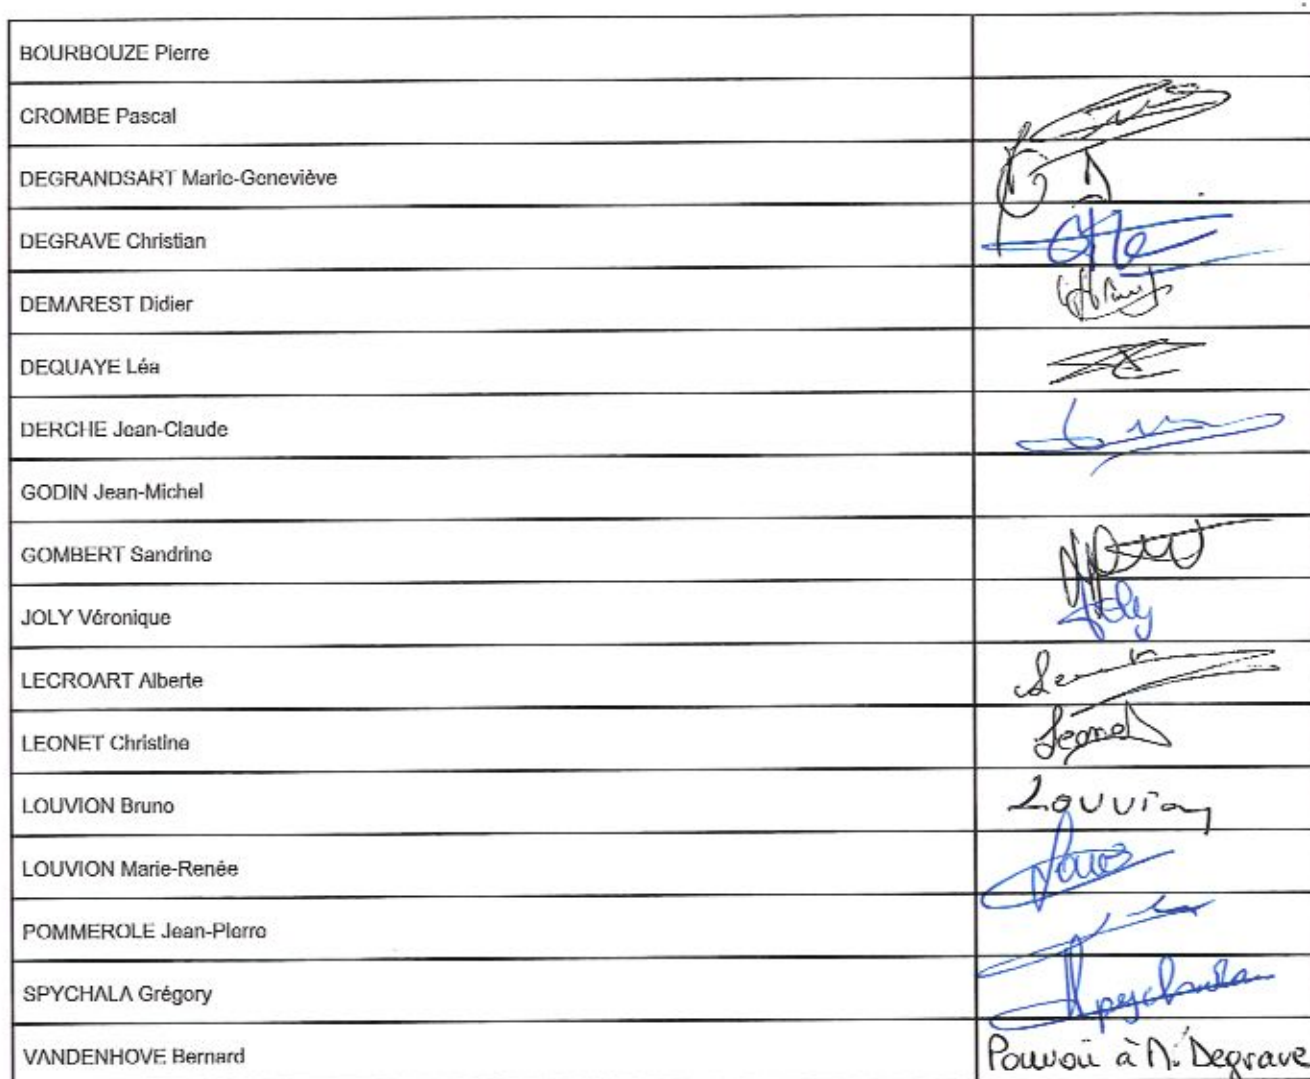 BOURBOUZE Pierre
CROMBE Pascal
DEGRANDSART Marie-Geneviève
DEGRAVE Christian
DEMAREST Didier
DEQUAYE Léa
DERCHE Jean-Claude
GODIN Jean-Michel
GOMBERT Sandrine
JOLY Véronique Joly
LECROART Alberte
LEONET Christine Leonet
LOUVION Bruno Louvion
LOUVION Marie-Renée
POMMEROLE Jean-Pierre
SPYCHALA Grégory Spychala
VANDENHOVE Bernard Pouvoir à M. Degrave